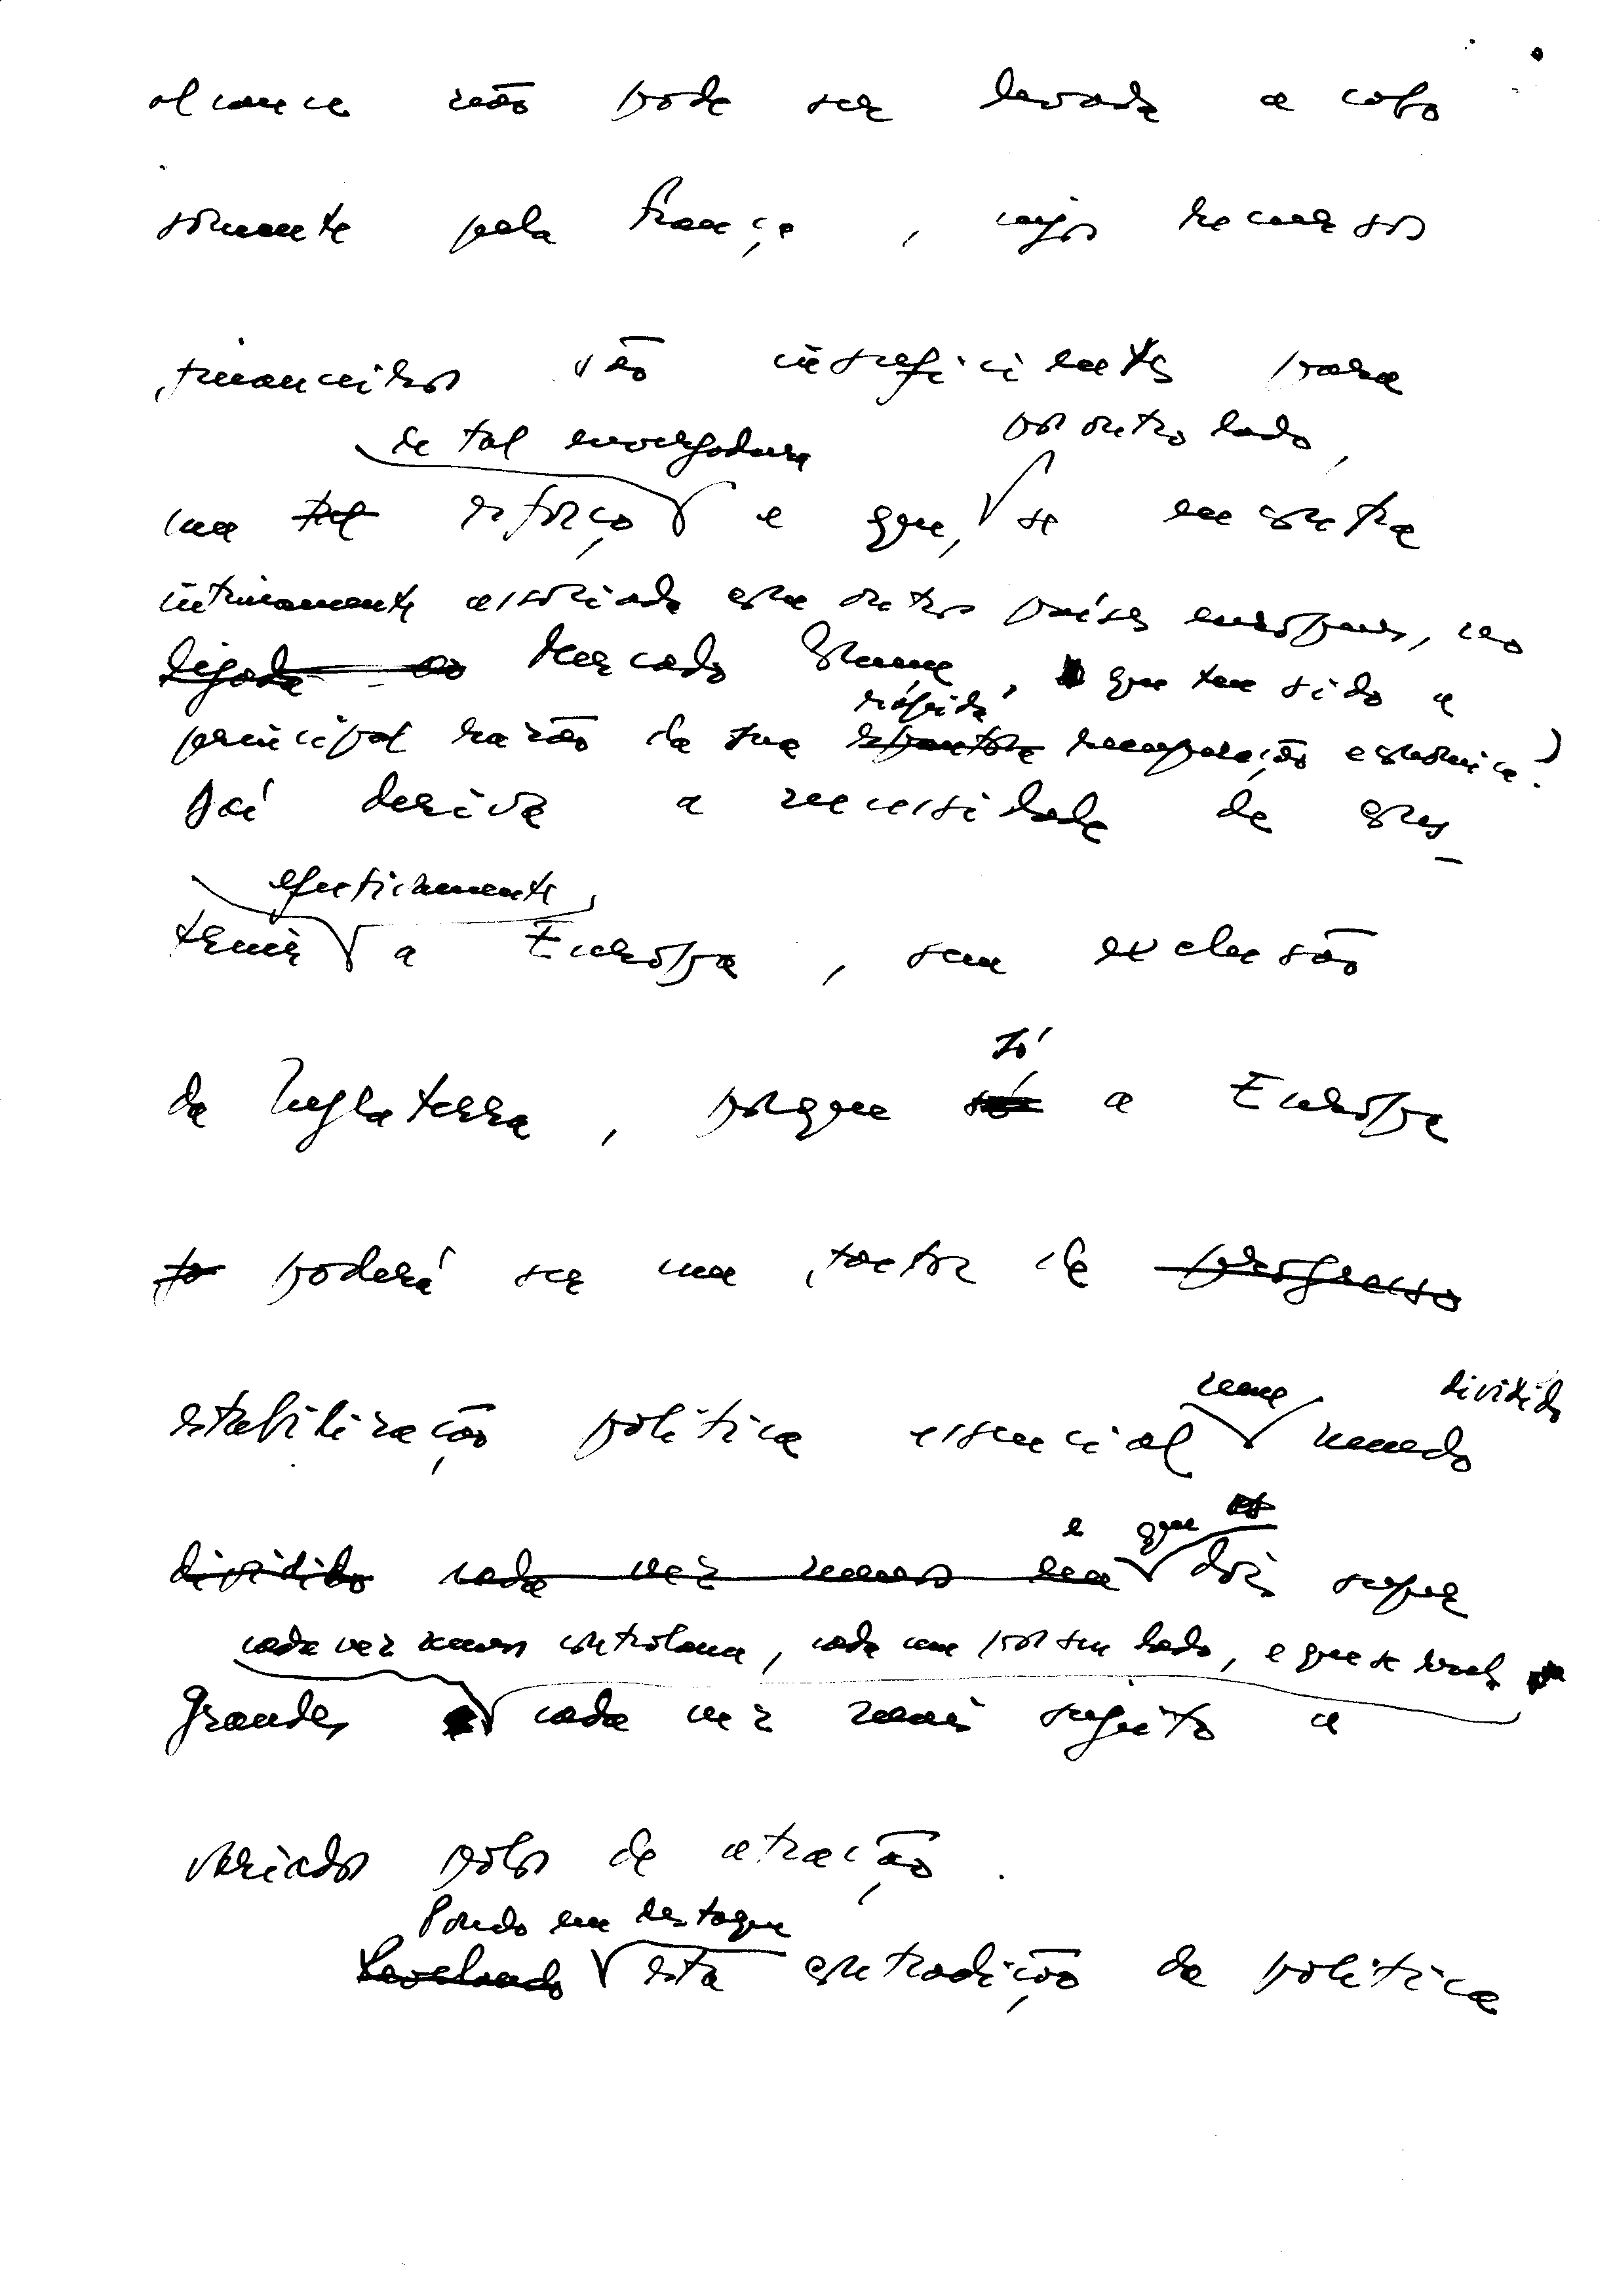 alcance não pode ser levada a cabo
somente pela França, cujos recursos
financeiros são insuficientes para
de tal envergadura por outro lado,
um tal esforço e que, se encontra
intimamente associada com outros países europeus, no
ligada ao Mercado Comum, que tem sido a
rápida
principal razão da sua recuperação econômica.)
Daí deriva a necessidade de cons-
efectivamente
truir a Europa, sem exclusão
da Inglaterra, porque só a Europa
só
poderá ser um factor de progresso
estabilização política essencial num mundo dividido
e que
dividido cada vez menos em dois super
cada vez menos controlam, cada um por seu lado, e que se
Grandes cada vez mais sujeito a
variados polos de atracção.
Pondo em destaque
Revelando esta contradição da política